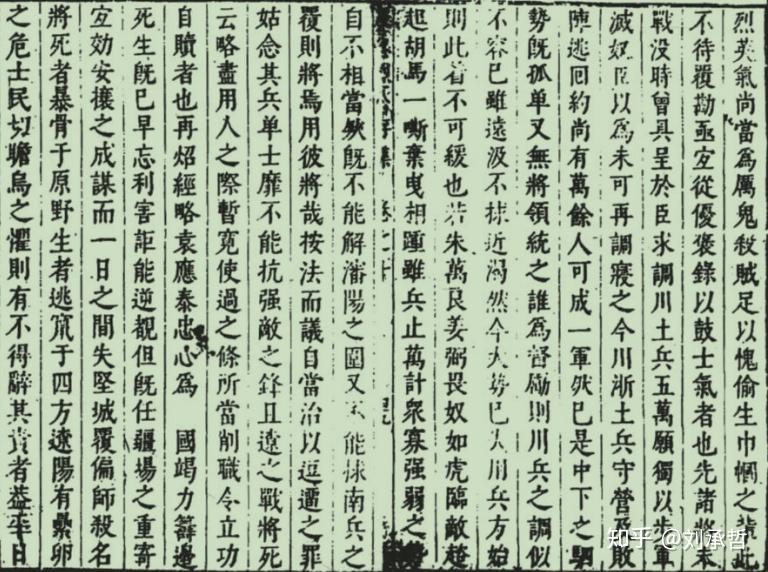 烈英氣尚當為厲鬼殺賊足以愧偷生巾幗之輩此
不待覆勘亟宜從優褒錄以鼓士氣者也先諸將未
戰沒時曾具呈於臣求調川土兵五萬願獨以步軍
滅奴臣以為未可再調寢之今川浙土兵守營及敗
陣逃回約尚有萬餘人可成一軍然已是中下之駟
勢既孤单又無將領統之誰為督勵則川兵之調似
不容已雖遠汲不抹近渴然今大勢已大川兵方始
則此着不可緩也若朱萬良姜弼畏奴如虎臨敵趦
趄胡馬一嘶棄曳相踵雖兵止萬計衆寡强弱之勢
自不相當然既不能解瀋陽之圍又不能捄南兵之
覆則將焉用彼將哉按法而議自當治以逗遛之罪
姑念其兵单士靡不能抗强敵之鋒且遼之戰將死
云略盡用人之際暫寬使過之條所當削職令立功
自贖者也再炤經略袁應泰忠心為 國竭力籌邊
死生既已早忘利害詎能逆覩但既任疆場之重寄
宜効安攘之成謀而一日之間失堅城覆偏師殺名
將死者暴骨于原野生者逃竄于四方遼陽有纍卵
之危士民切瞻烏之懼則有不得辭其責者葢平日
知乎 @刘承哲